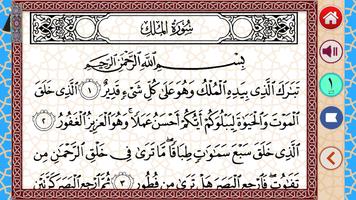 سُورَةُ الْمُلْكِ
بِسْمِ اللَّهِ الرَّحْمَٰنِ الرَّحِيمِ
تَبَٰرَكَ الَّذِى بِيَدِهِ الْمُلْكُ وَهُوَ عَلَىٰ كُلِّ شَىْءٍ قَدِيرٌ ١ الَّذِى خَلَقَ
الْمَوْتَ وَالْحَيَوٰةَ لِيَبْلُوَكُمْ أَيُّكُمْ أَحْسَنُ عَمَلًا ۚ وَهُوَ الْعَزِيزُ الْغَفُورُ ٢
الَّذِى خَلَقَ سَبْعَ سَمَٰوَٰتٍ طِبَاقًا ۖ مَّا تَرَىٰ فِى خَلْقِ الرَّحْمَٰنِ مِن
تَفَٰوُتٍ ۖ فَارْجِعِ الْبَصَرَ هَلْ تَرَىٰ مِن فُطُورٍ ٣ ثُمَّ ارْجِعِ الْبَصَرَ كَرَّتَيْنِ
١